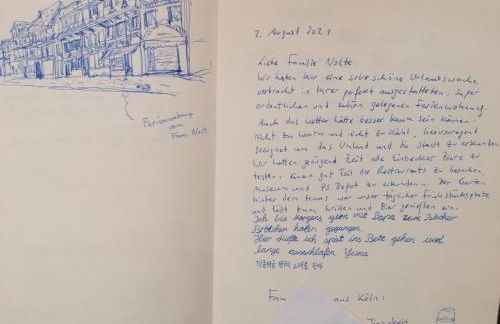 Ferienwohnung
von
Fam. Nolt.
2. August 2021
Liebe Familie Nolte.
Wir haben hier eine sehr schöne Urlaubswoche
verbracht in Ihrer perfekt ausgestatteten, super
ordentlichen und schön gelegenen Ferienwohnung.
Auch das Wetter hätte besser kaum sein können:
nicht zu warm und nicht zu kühl. Hervorragend
geeignet um das Umland und die Stadt zu erkunden.
Wir hatten genügend Zeit alle Einbecker Biere zu
testen, einen gut Teil der Restaurants zu besuchen,
Museum und PS. Depot zu erkunden. Der Garten
hinter dem Haus war unser täglicher Frühstücksplatz
und lädt zum Grillen und Bier genießen ein.
Ich bin Morgens gern mit Papa zum Bäcker
Brötchen holen gegangen.
Hier durfte ich spät ins Bett gehen und
lange ausschlafen. Yuna
Fam aus Köln: